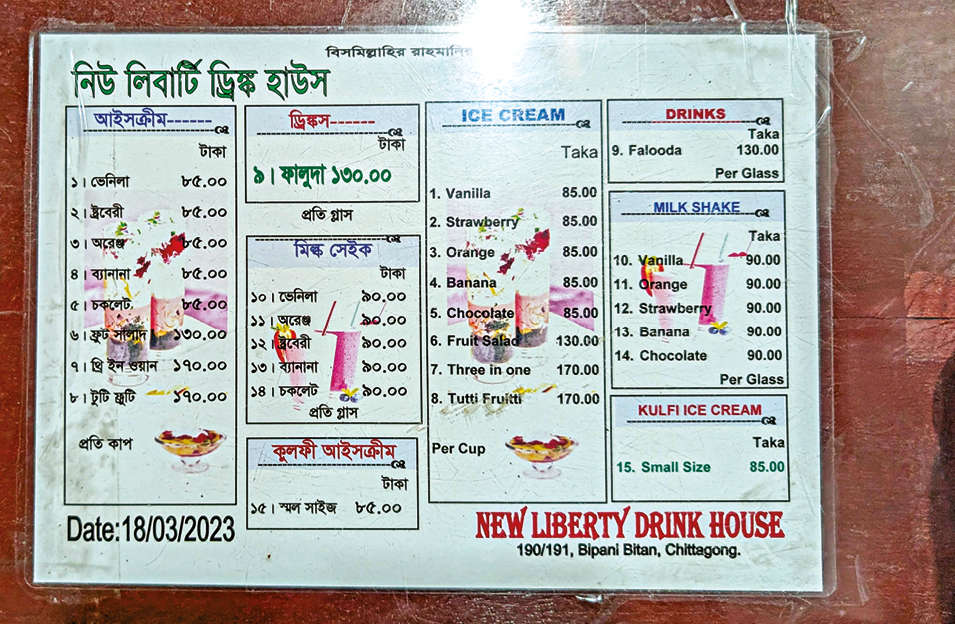 বিসমিল্লাহির
নিউ লিবার্টি ড্রিঙ্ক হাউস
আইসক্রীম------
টাকা
১। ভেনিলা ৮৫.০০
২। ষ্ট্রবেরী ৮৫.০০
৩। অরেঞ্জ ৮৫.০০
৪। ব্যানানা ৮৫.০০
৫। চকলেট. ৮৫.০০
৬। ফ্রুট সালাদ ১৩০.০০
৭। থ্রি ইন ওয়ান ১৭০.০০
৮। টুটি ফ্রুটি ১৭০.০০
প্রতি কাপ
ড্রিঙ্কস------
টাকা
৯। ফালুদা ১৩০.০০
প্রতি গ্লাস
মিল্ক সেইক
টাকা
১০। ভেনিলা ৯০.০০
১১। অরেঞ্জ ৯০.০০
১২। ষ্ট্রবেরী ৯০.০০
১৩। ব্যানানা ৯০.০০
১৪। চকলেট ৯০.০০
প্রতি গ্লাস
কুলফী আইসক্রীম
টাকা
১৫। স্মল সাইজ ৮৫.০০
ICE CREAM
Taka
1. Vanilla 85.00
2. Strawberry 85.00
3. Orange 85.00
4. Banana 85.00
5. Chocolate 85.00
6. Fruit Salad 130.00
7. Three in one 170.00
8. Tutti Fruitti 170.00
Per Cup
DRINKS
Taka
9. Falooda 130.00
Per Glass
MILK SHAKE
Taka
10. Vanilla 90.00
11. Orange 90.00
12. Strawberry 90.00
13. Banana 90.00
14. Chocolate 90.00
Per Glass
KULFI ICE CREAM
Taka
15. Small Size 85.00
Date:18/03/2023
NEW LIBERTY DRINK HOUSE
190/191, Bipani Bitan, Chittagong.